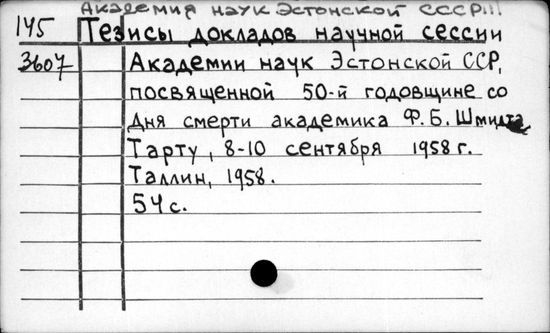 Академия наук Эстонской СССР!!!
145 Тезисы докладов научной сессии
3607 Академии наук Эстонской ССР,
посвященной 50-й годовщине со
дня смерти академика Ф.Б. Шмидта
Тарту, 8-10 сентября 1958 г.
Таллин, 1958.
54 с.